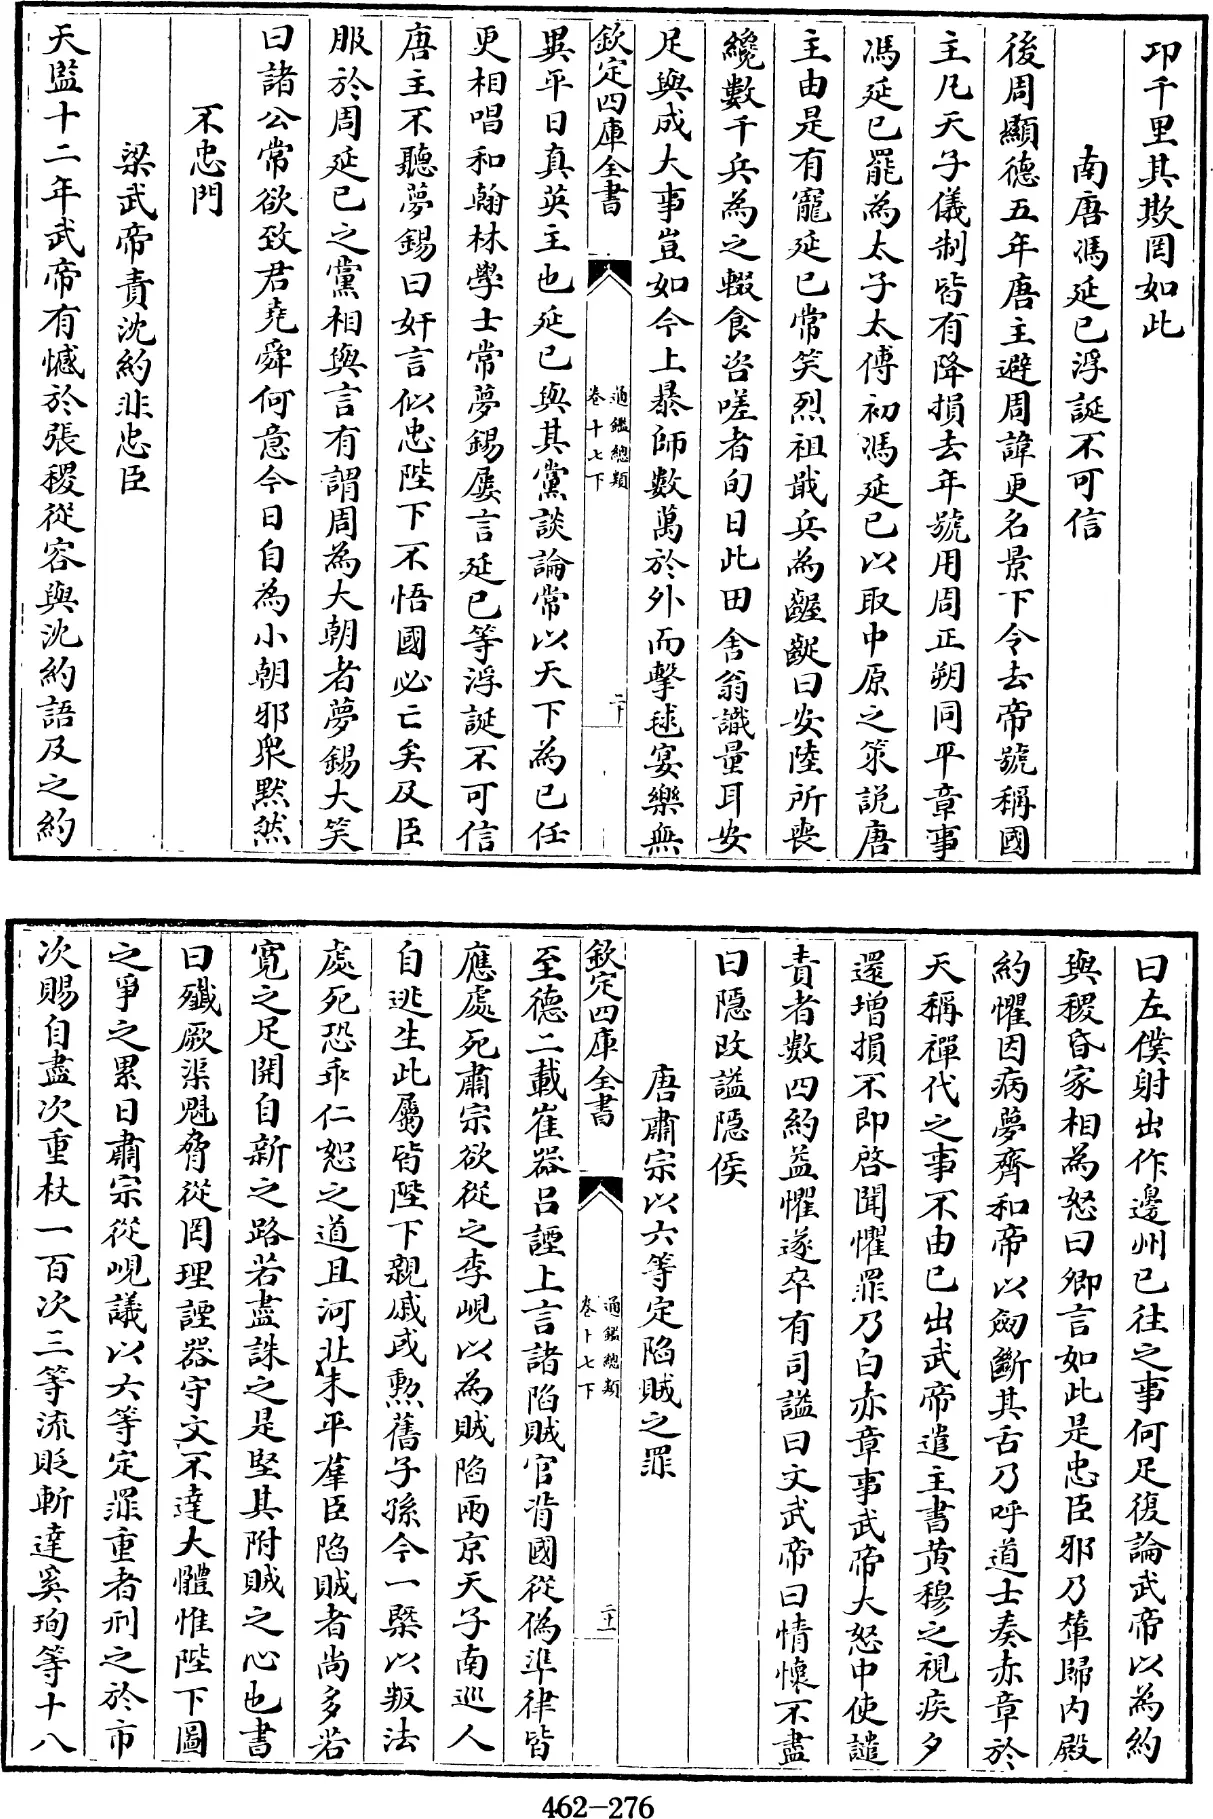 卭千里其欺罔如此
南唐馮延已浮誕不可信
後周顯德五年唐主避周諱更名景下令去帝號稱國
主凡天子儀制皆有降損去年號用周正朔同平章事
馮延已罷為太子太傅初馮延已以取中原之策説唐
主由是有寵延已常笑烈祖戢兵為齷齪曰安陸所喪
纔數千兵為之輟食咨嗟者旬日此田舍翁識量耳安
足與成大事豈如今上暴師數萬於外而擊毬宴樂無
欽定四庫全書
通鑑總類
卷十七下
二十
異平日真英主也延已與其黨談論常以天下為已任
更相唱和翰林學士常夢錫屢言延已等浮誕不可信
唐主不聽夢錫曰奸言似忠陛下不悟國必亡矣及臣
服於周延已之黨相與言有謂周為大朝者夢錫大笑
曰諸公常欲致君堯舜何意今日自為小朝邪衆黙然
不忠門
梁武帝責沈約非忠臣
天監十二年武帝有憾於張稷從容與沈約語及之約
曰左僕射出作邊州已往之事何足復論武帝以為約
與稷昏家相為怒曰卿言如此是忠臣邪乃輦歸内殿
約懼因病夢齊和帝以劒斷其舌乃呼道士奏赤章於
天稱禪代之事不由已出武帝遣主書黄穆之視疾夕
還增損不即啓聞懼罪乃白赤章事武帝大怒中使譴
責者數四約益懼遂卒有司諡曰文武帝曰情懷不盡
曰隱改諡隱侯
唐肅宗以六等定陷賊之罪
欽定四庫全書
通鑑總類
卷十七下
二十一
至德二載崔器吕諲上言諸陷賊官背國從偽準律皆
應處死肅宗欲從之李峴以為賊陷兩京天子南巡人
自逃生此屬皆陛下親戚或勲舊子孫今一槩以叛法
處死恐乖仁恕之道且河北未平羣臣陷賊者尚多若
寛之足開自新之路若盡誅之是堅其附賊之心也書
曰殲厥渠魁脅從罔理諲器守文不達大體惟陛下圖
之爭之累日肅宗從峴議以六等定罪重者刑之於市
次賜自盡次重杖一百次三等流貶斬達奚珣等十八
462-276